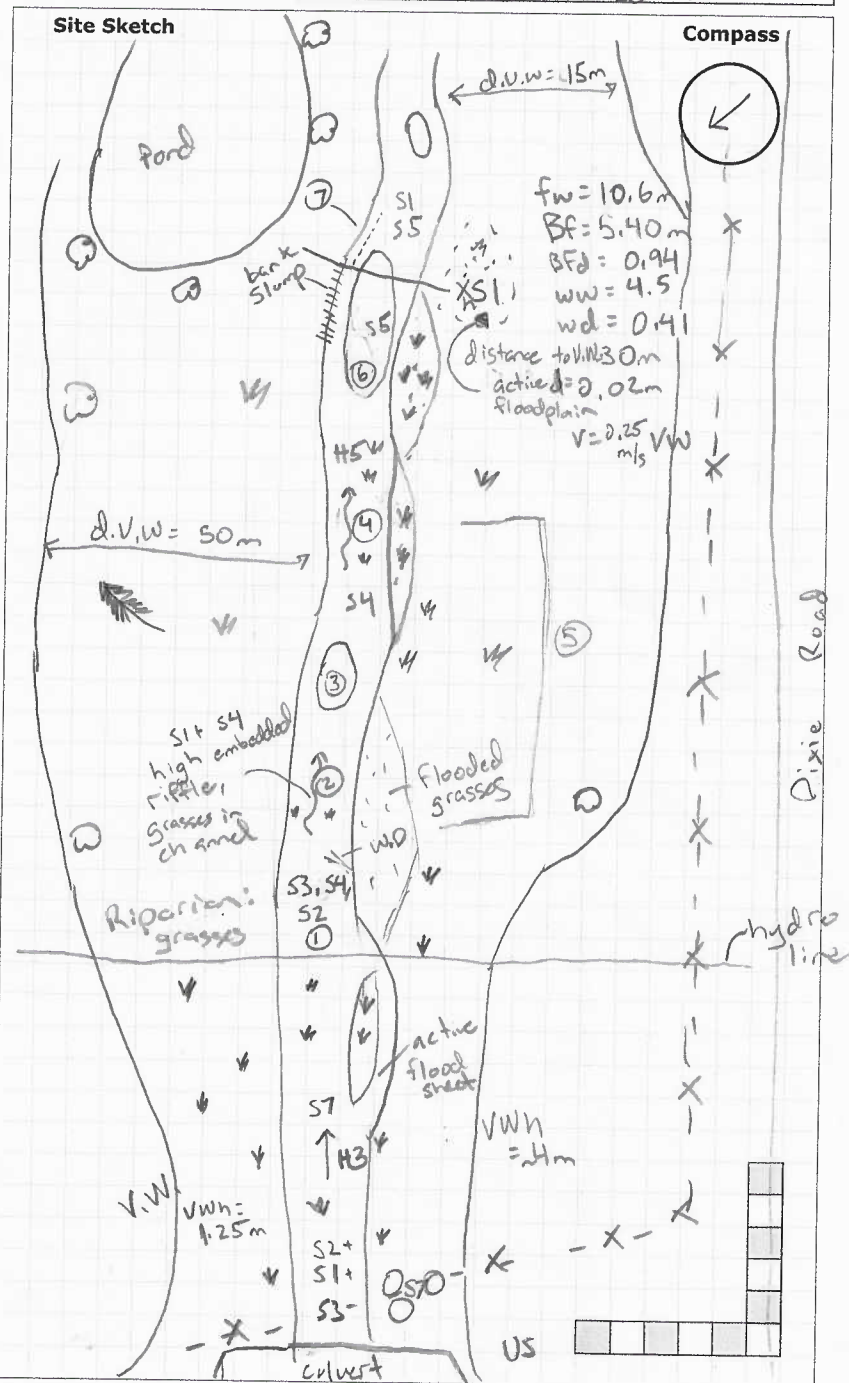 Site Sketch
Compass
d.v.w = 15m
Pond
⑦
S1
S5
fw = 10.6m
Bf = 5.40m
BFd = 0.94
ww = 4.5
wd = 0.41
bank
slump
XS1
S5
⑥
distance to V.W. 30m
active d = 0.02m
floodplain
V = 0.25
m/s
VW
H5
④
d.V.W = 50m
S4
⑤
Dixie Road
③
S1+ S4
high embedded
riffle,
grasses in
channel
②
flooded
grasses
W.D
S3, S4,
S2
①
Riparian:
grasses
hydro
line
active
flood
S7
H3
VWh
V.W.
VWh =
1.25m
S2+
S1+
S3-
S7
US
culvert